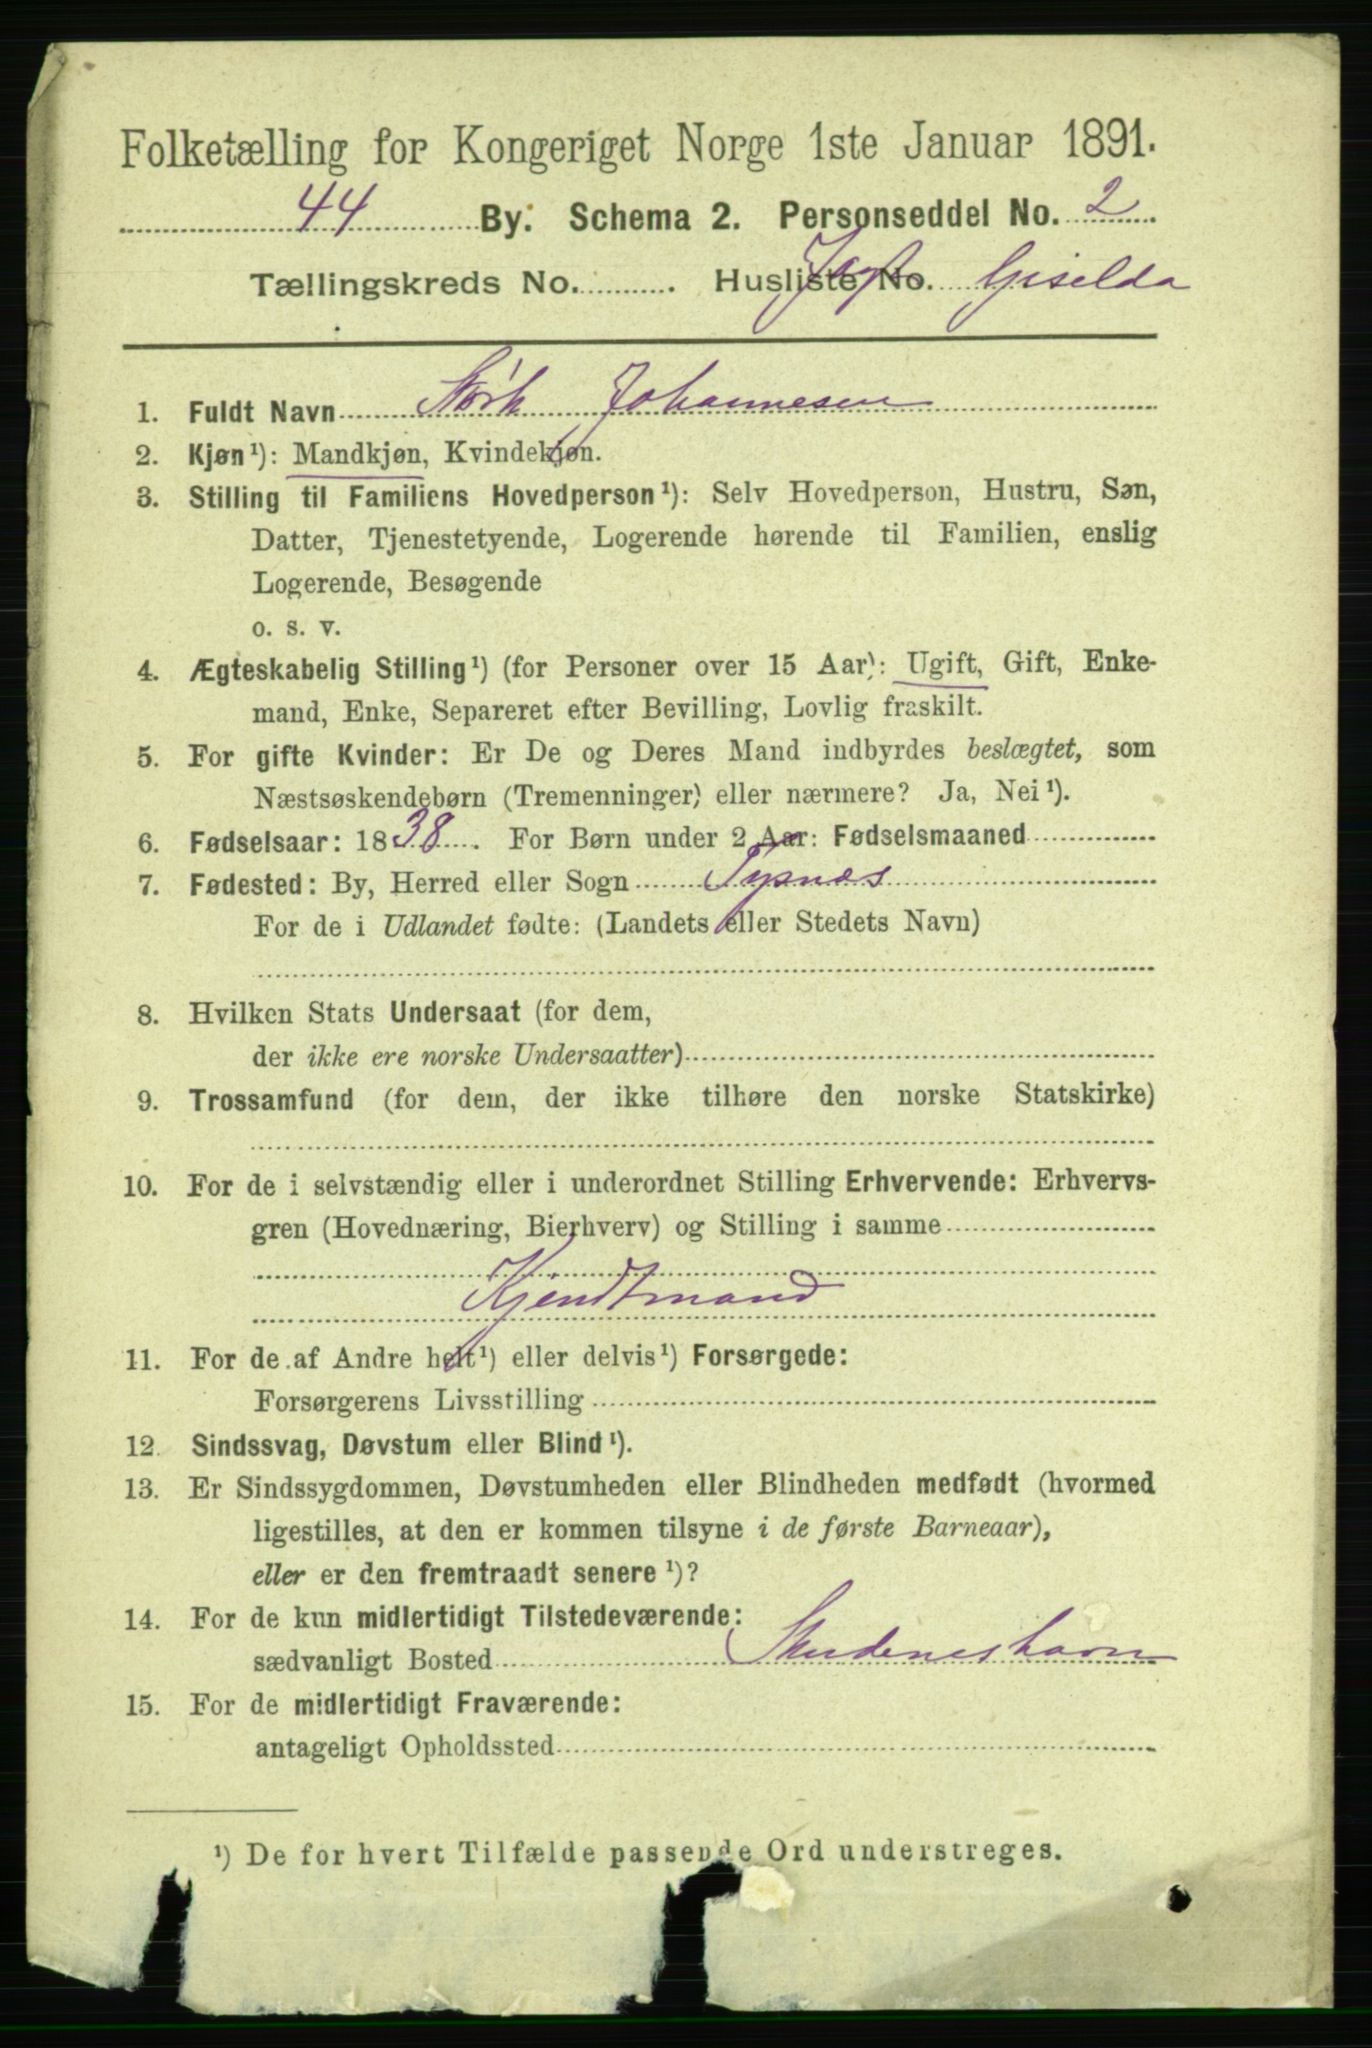 Folketælling for Kongeriget Norge 1ste Januar 1891.
44 By. Schema 2. Personseddel No. 2
Tællingskreds No. Husliste No. Jagt Giselda
1. Fuldt Navn Størk Johannesen
2. Kjøn¹): Mandkjøn, Kvindekjøn.
3. Stilling til Familiens Hovedperson¹): Selv Hovedperson, Hustru, Søn,
Datter, Tjenestetyende, Logerende hørende til Familien, enslig
Logerende, Besøgende
o. s. v.
4. Ægteskabelig Stilling¹) (for Personer over 15 Aar): Ugift, Gift, Enke-
mand, Enke, Separeret efter Bevilling, Lovlig fraskilt.
5. For gifte Kvinder: Er De og Deres Mand indbyrdes beslægtet, som
Næstsøskendebørn (Tremenninger) eller nærmere? Ja, Nei¹).
6. Fødselsaar: 1838. For Børn under 2 Aar: Fødselsmaaned
7. Fødested: By, Herred eller Sogn Tysnæs
For de i Udlandet fødte: (Landets eller Stedets Navn)
8. Hvilken Stats Undersaat (for dem,
der ikke ere norske Undersaatter)
9. Trossamfund (for dem, der ikke tilhøre den norske Statskirke)
10. For de i selvstændig eller i underordnet Stilling Erhvervende: Erhvervs-
gren (Hovednæring, Bierhverv) og Stilling i samme
Kjendtmand
11. For de af Andre helt¹) eller delvis¹) Forsørgede:
Forsørgerens Livsstilling
12. Sindssvag, Døvstum eller Blind¹).
13. Er Sindssygdommen, Døvstumheden eller Blindheden medfødt (hvormed
ligestilles, at den er kommen tilsyne i de første Barneaar),
eller er den fremtraadt senere¹)?
14. For de kun midlertidigt Tilstedeværende:
sædvanligt Bosted Skudeneshavn
15. For de midlertidigt Fraværende:
antageligt Opholdssted
¹) De for hvert Tilfælde passende Ord understreges.